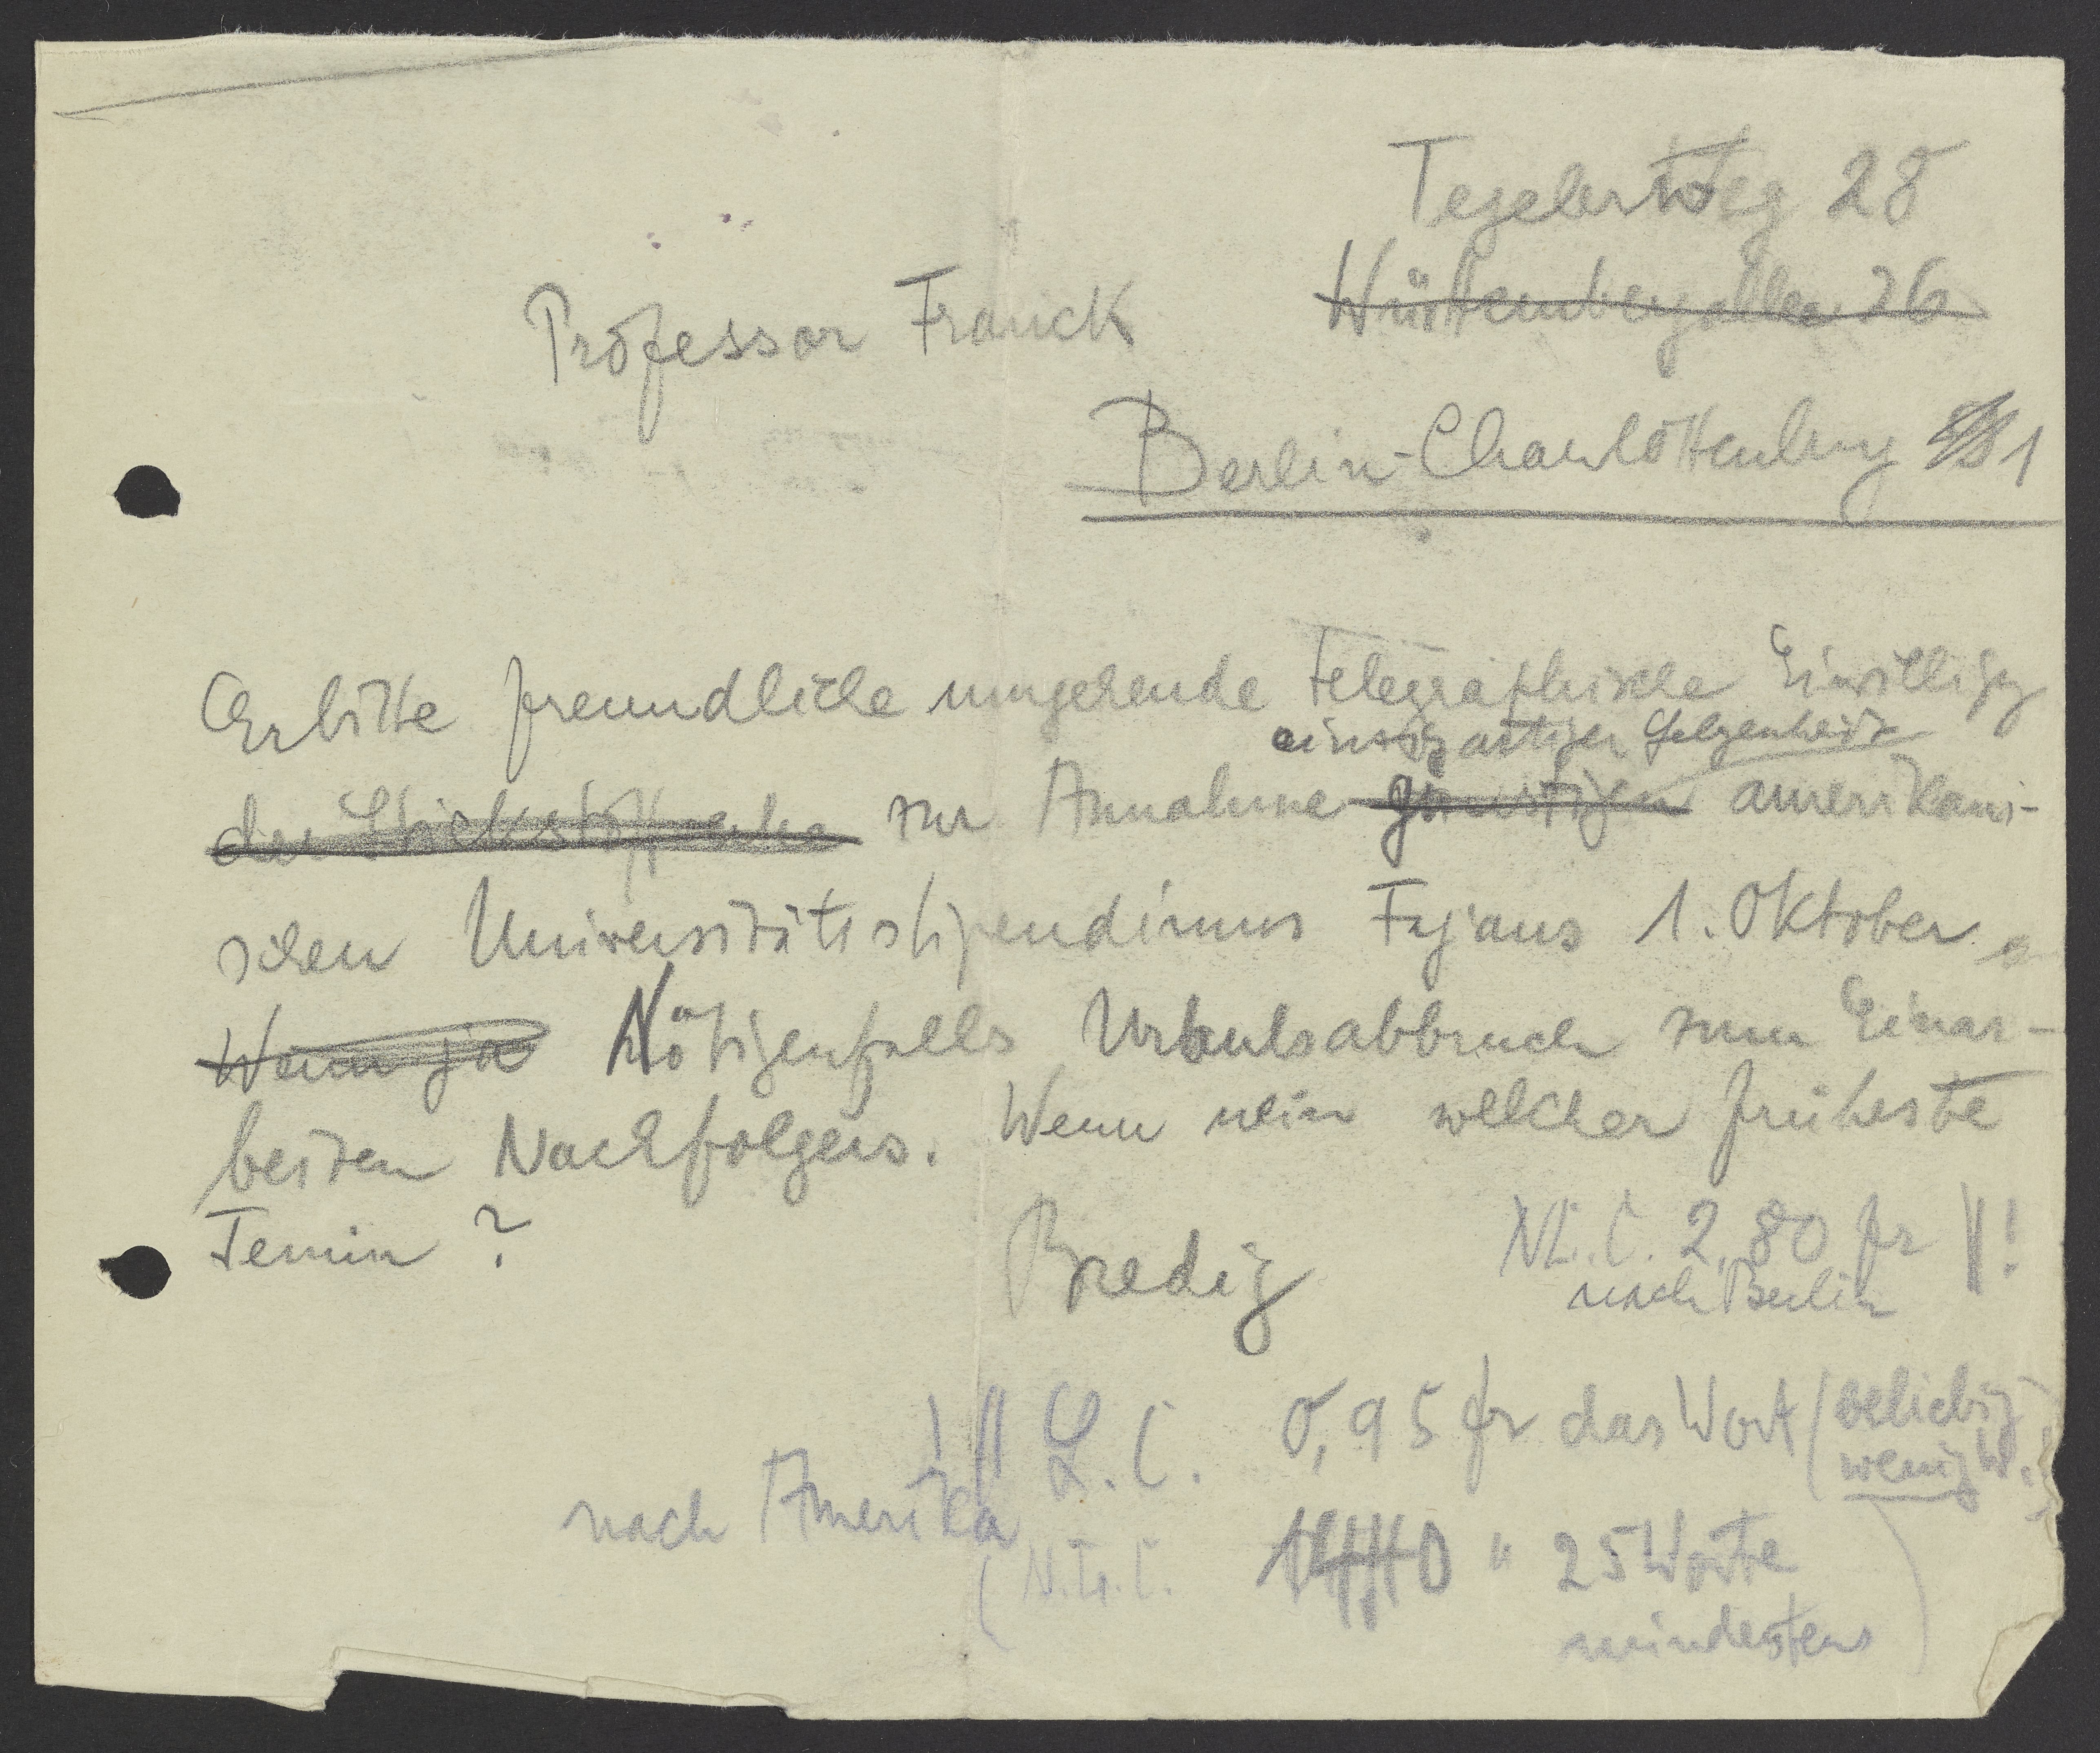 Tegelerweg 28
Professor Franck
Württembergallee 26
Berlin-Charlottenburg 1
Erbitte freundliche umgehende telegraphische Einwilligg
einzigartiger Gelegenheit
der Stickstoffsache zur Annahme günstigen amerikani-
schen Universitätsstipendiums Fajans 1. Oktober
Wenn ja Nötigenfalls Urlaubsabbruch zum Einar-
beiten Nachfolgers. Wenn nein welcher früheste
Termin?
Bredig
NL.C. 2,80 fr !
nach Berlin
! L.C. 0,95 fr das Wort (beliebig
wenig W.)
nach Amerika
(N.L.C. " 25 Worte
mindestens)